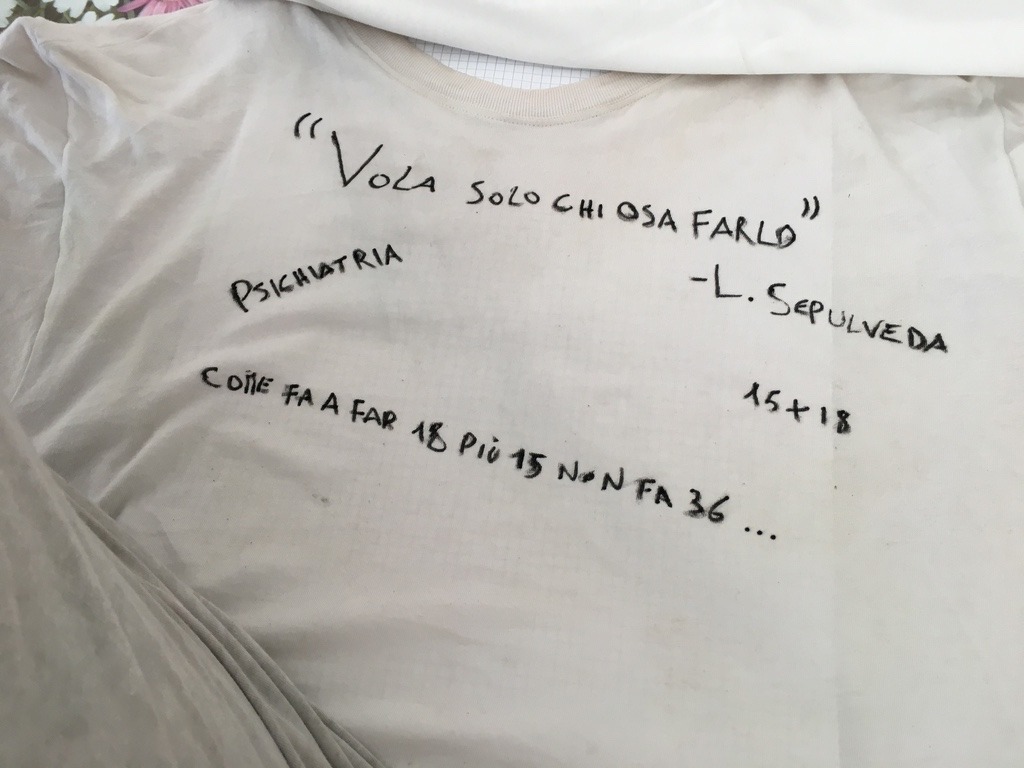 “VOLA SOLO CHI OSA FARLO”
-L. SEPULVEDA
PSICHIATRIA
15+18
COME FA A FAR 18 PIÙ 15 NON FA 36 ...